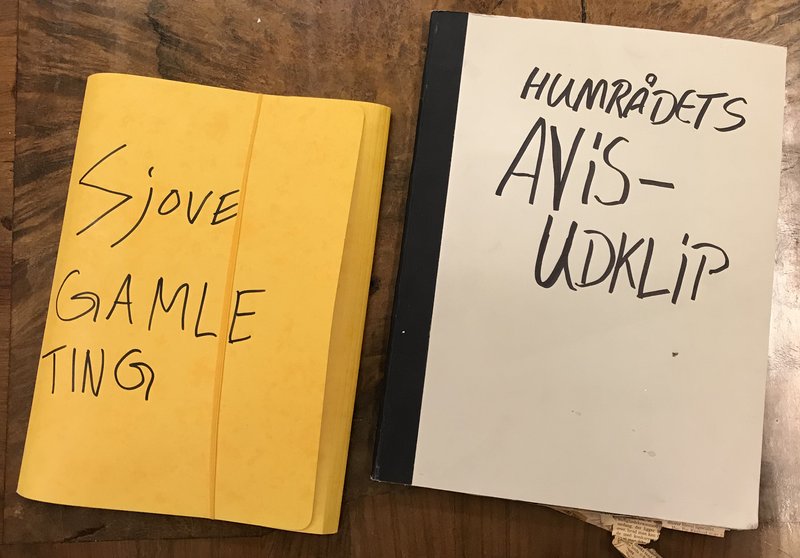 Sjove
GAMLE
TING
HUMRÅDETS
AViS-
UDKLiP